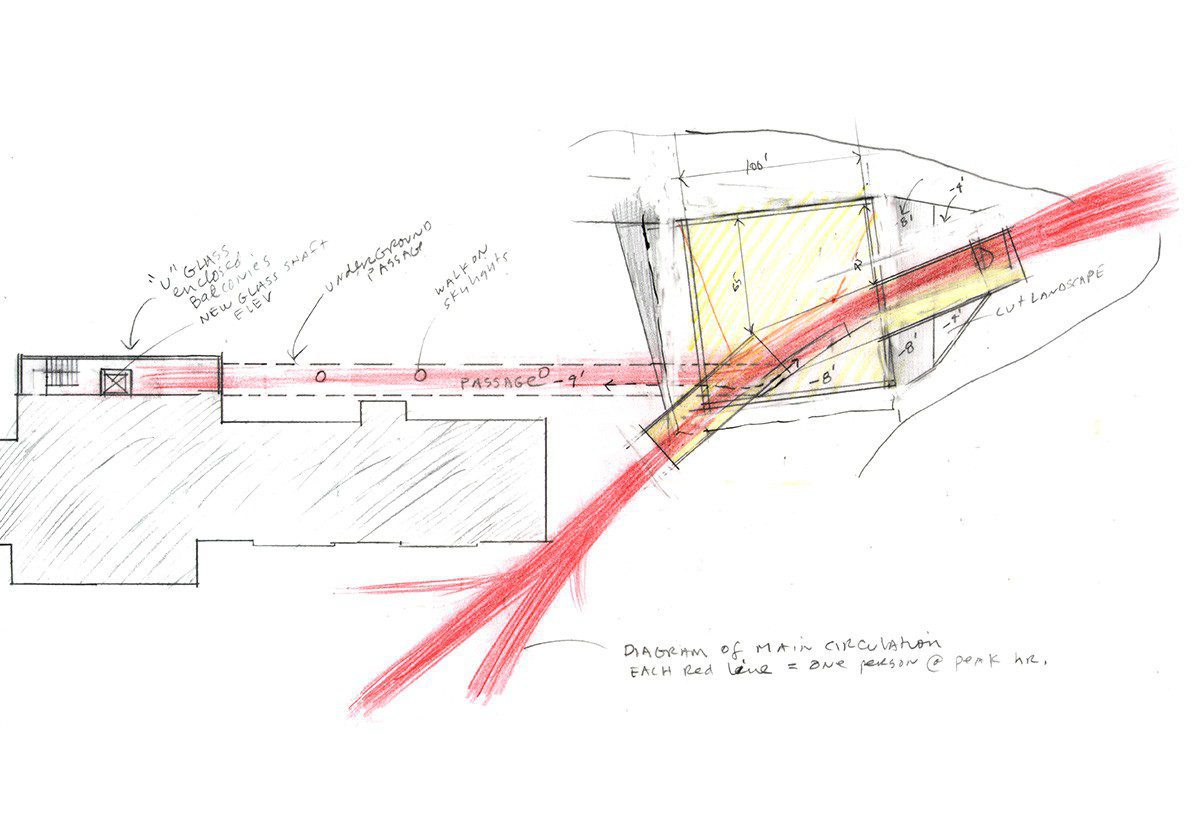 "U" GLASS
enclosed
BALCONIES
NEW GLASS SHAFT
ELEV
UNDERGROUND
PASSAGE
WALK ON
SKYLIGHTS
100'
65'
8'
-4'
PASSAGE -9'
-8'
-8'
-4'
CUT LANDSCAPE
DIAGRAM OF MAIN CIRCULATION
EACH Red Line = ONE PERSON @ PEAK HR.